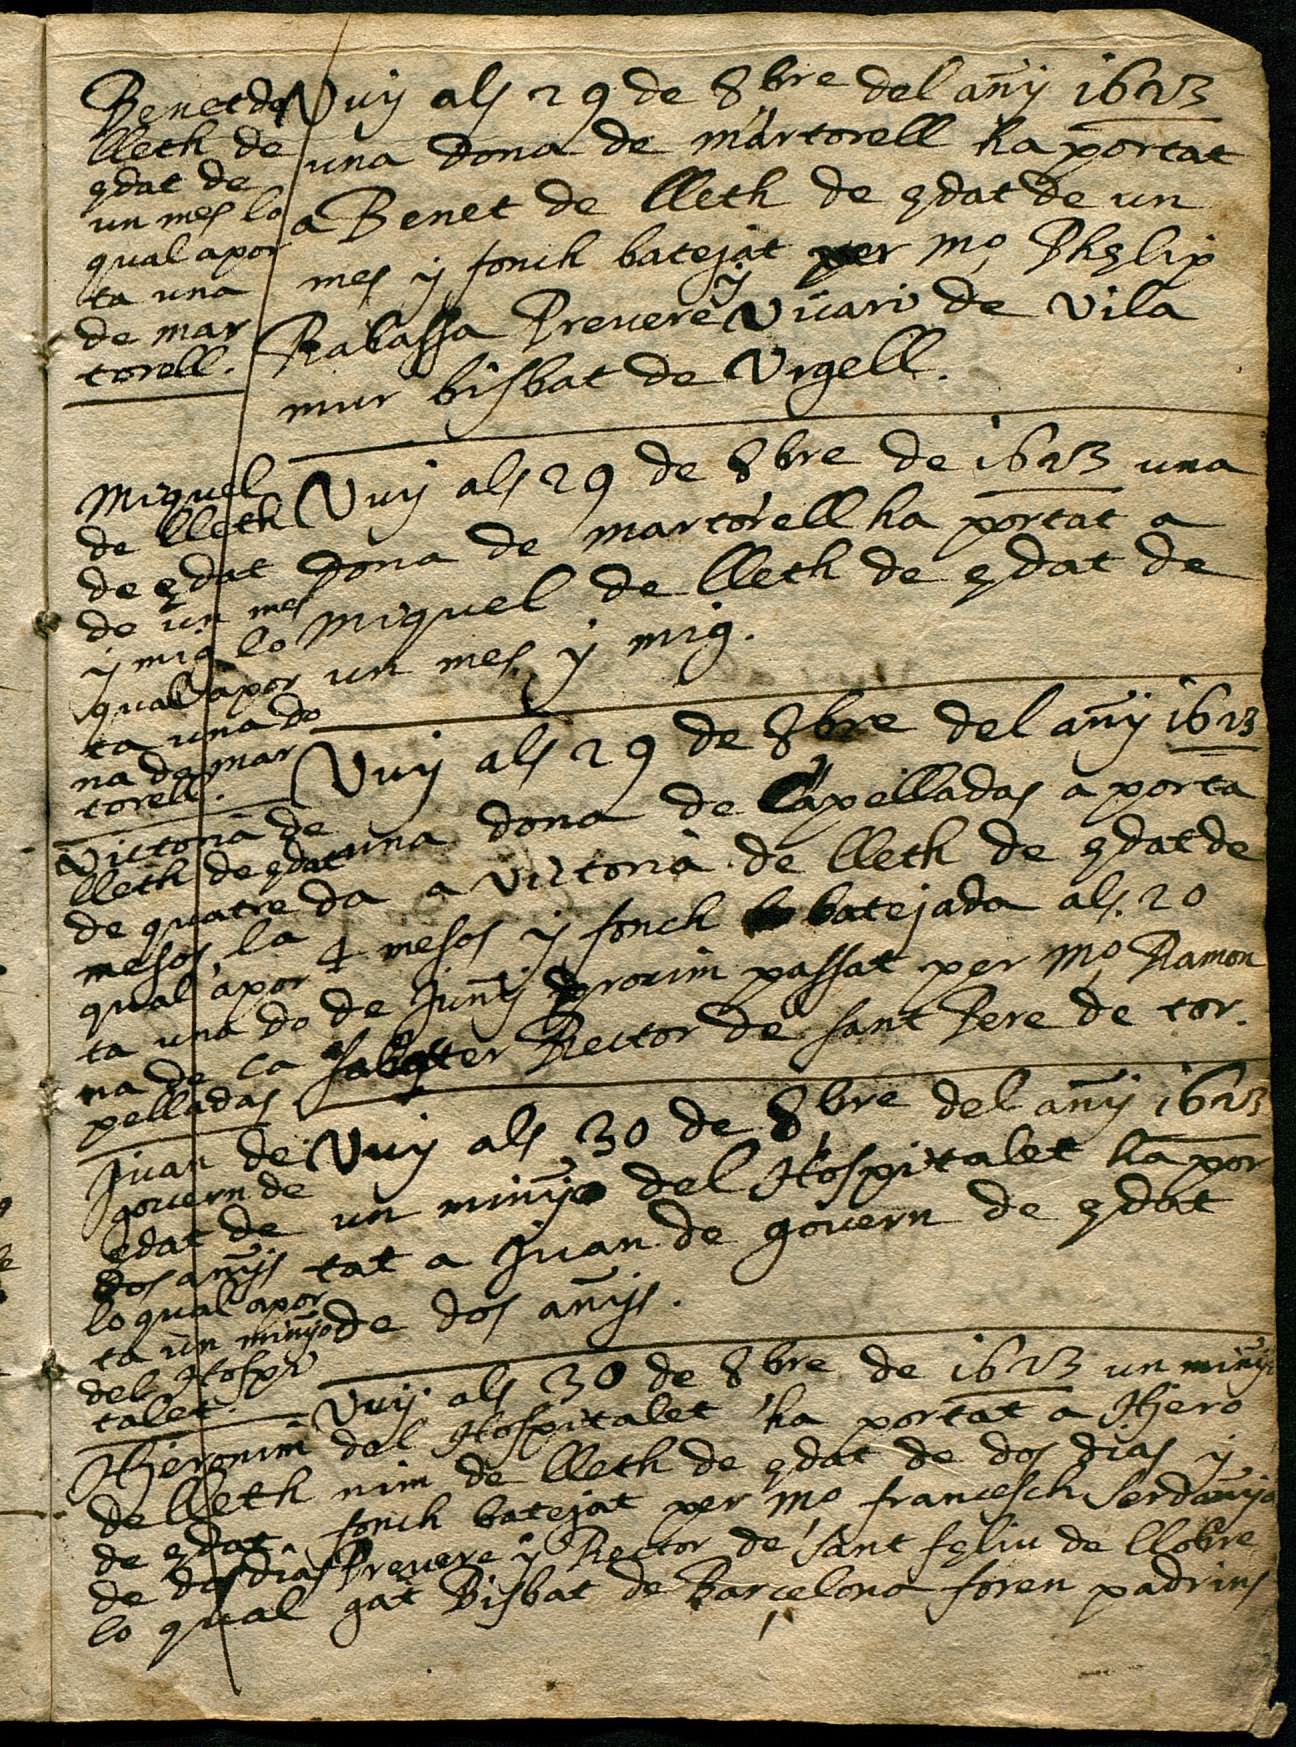 Benet de
lleth de
edat de
un mes lo
qual apor
ta una
de mar
torell.
Vuy als 29 de 8bre del añy 1623
una dona de martorell ha portat
a Benet de lleth de edat de un
mes y fonch batejat per mº Phelip
Rabassa Prevere y Vicari de Vila
mur bisbat de Vrgell.
Miquel
de lleth
de edat
de un mes
y mig lo
qual apor
ta una do
na de mar
torell.
Vuy als 29 de 8bre de 1623 una
dona de martorell ha portat a
Miquel de lleth de edat de
un mes y mig.
Victoria de
lleth de edat
de quatre
mesos, la
qual apor
ta una do
na de Ca
pelladas
Vuy als 29 de 8bre del añy 1623
una dona de Capelladas a porta
da a Victoria de lleth de edat de
4 mesos y fonch batejada als 20
de Juñy proxim passat per mº Ramon
Sabater Rector de sant Pere de tor.
Juan de
govern de
edat de
dos añys
lo qual apor
ta un minyo
del Hospi
talet.
Vuy als 30 de 8bre del añy 1623
un minyo del Hospitalet ha por
tat a Juan de govern de edat
de dos añys.
Hjeronim
de lleth
de edat
de dos dias
lo qual
Vuy als 30 de 8bre de 1623 un miñy
del Hospitalet ha portat a Hjero
nim de lleth de edat de dos dias y
fonch batejat per mº francesch Serdañya
Prevere y Rector de Sant feliu de llobre
gat Bisbat de Barçelona foren padrins